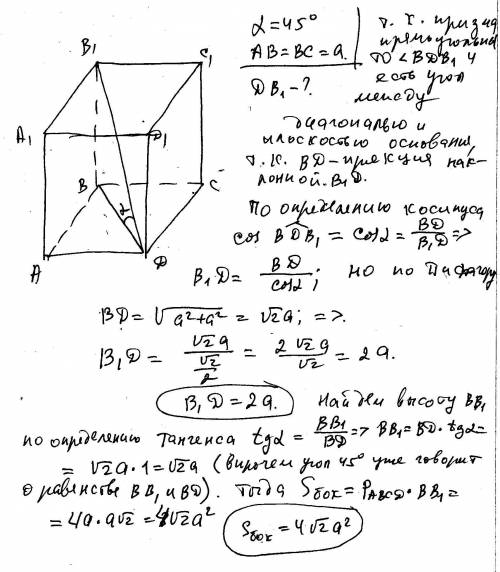 α = 45°
AB = BC = a.
DB₁ - ?
т. к. призма
прямоугольна
то < BDB₁ и
есть угол
между
диагональю и
плоскостью основания,
т. к. BD – проекция нак-
лонной B₁D.
B₁
C₁
A₁
D₁
B
C
α
A
D
По определению косинуса
cos BDB₁ = cos α = BD/B₁D =>
B₁D = BD/cos α ; но по Пифагору
BD = √a² + a² = √2 a ; =>.
B₁D = √2 a / (√2/2) = 2 √2 a / √2 = 2 a.
B₁D = 2a.
Найдем высоту BB₁
по определению тангенса tg α = BB₁/BD => BB₁ = BD · tg α =
= √2 a · 1 = √2 a (впрочем угол 45° уже говорит
о равенстве BB₁ и BD). Тогда Sбок = PABCD · BB₁ =
= 4a · a√2 = 4√2 a²
Sбок = 4√2 a²